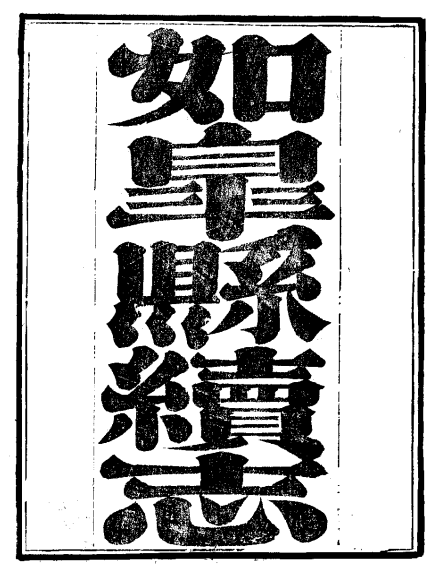 如皋縣續志